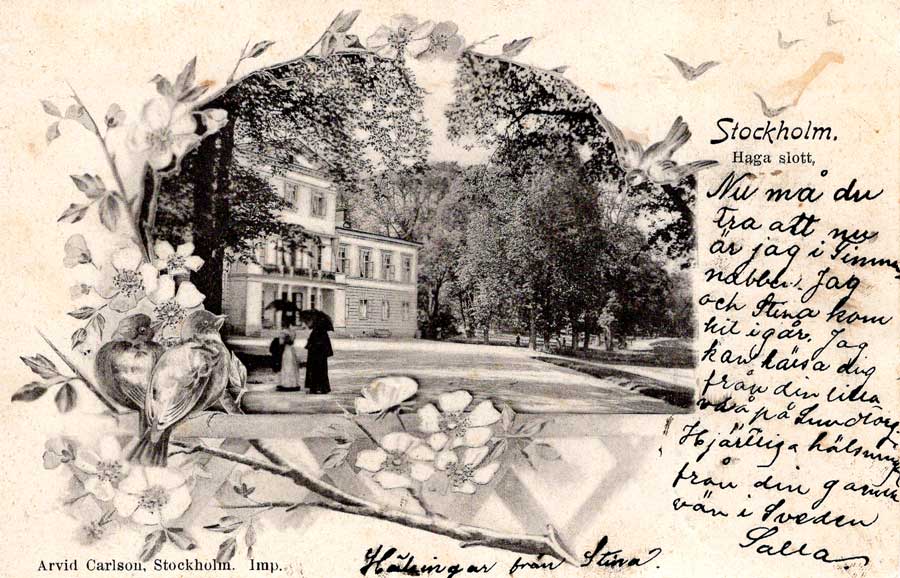 Stockholm.
Haga slott,
Nu må du
tra att nu
är jag i Timmer
nabben. Jag
och Stina kom
hit igår. Jag
kan hälsa dig
från din lilla
på Lundtorp
Hjärtliga hälsning
från din gamla
vän i Sveden
Salla.
Hälsingar från Stina.
Arvid Carlson, Stockholm. Imp.